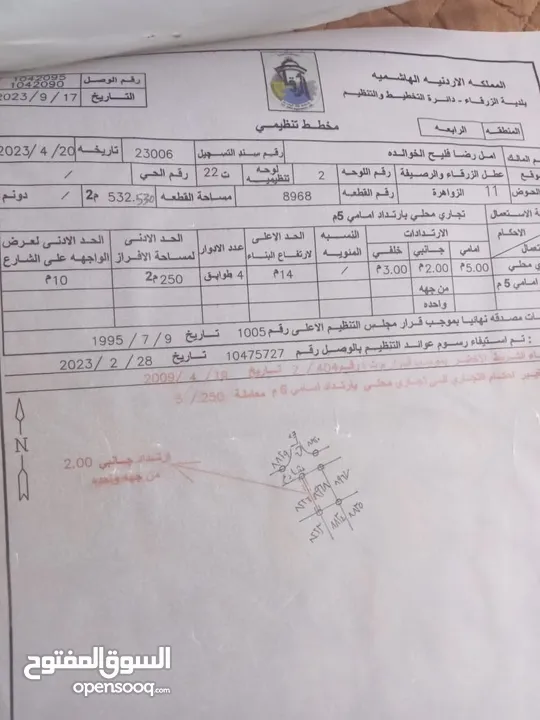 المملكه الاردنيه الهاشميه
بلدية الزرقاء - دائرة التخطيط والتنظيم
المنطقه الرابعه
مخطط تنظيمي
رقم الوصل 1042095
1042090
التاريخ 2023/9/17
م المالك امل رضا فليح الخوالده رقم سند التسجيل 23006 تاريخه 2023/4/20
وقع عطل الزرقاء والرصيفة رقم اللوحه 2 لوحه تنظيميه ت22 رقم الحي /
الحوض 11 الزواهرة رقم القطعه 8968 مساحة القطعه 532.530 م2 / دونم
ة الاستعمال تجاري محلي بارتداد امامي 5م
الاحكام الارتدادات النسبه المئويه الحد الاعلى لارتفاع البناء عدد الادوار الحد الادنى لمساحة الافراز الحد الادنى لعرض الواجهه على الشارع
امامي جانبي خلفي
ي محلي 5.00م 2.00م 3.00م / 14م 4 طوابق 250م2 10م
امامي 5م من جهه واحده
ات مصدقه نهائيا بموجب قرار مجلس التنظيم الاعلى رقم 1005 تاريخ 1995/7/9
: تم استيفاء رسوم عوائد التنظيم بالوصل رقم 10475727 تاريخ 2023/2/28
تاريخ 2009/4/19
احكام التجاري الى تجاري محلي بارتداد امامي 5م معاملة 250/5
N
ارتداد جانبي 2.00
من جهه واحده
شارع
السوق المفتوح
opensooq.com